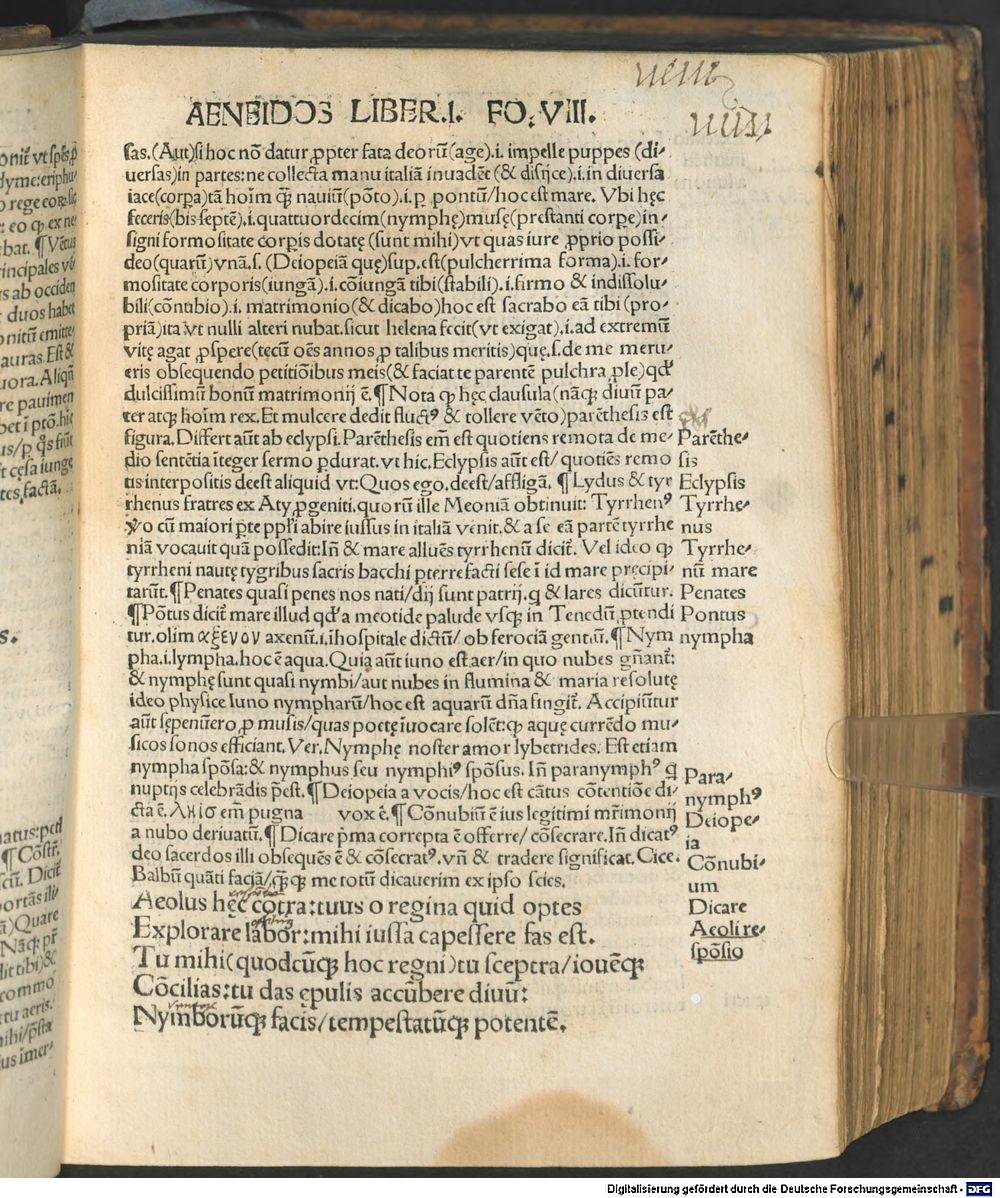 AENEIDOS LIBER.I. FO.VIII.
sas.(Aut)si hoc nō datur ꝓpter fata deorū(age).i. impelle puppes (di/
uersas)in partes:ne collecta manu italiā inuadēt (& disijce).i.in diuersa
iace(corpa)tā hoīm qꝫ nauiū(pōto).i.p pontū/hoc est mare. Vbi hęc
feceris(bis septē).i.quattuordecim(nymphę)musę(prestanti corpe)in/
signi formositate corpis dotatę(sunt mihi)vt quas iure ꝓprio possi/
deo(quarū)vnā.s. (Deiopeiā quę)sup.est(pulcherrima forma).i.for/
mositate corporis(iungā).i.cōiungā tibi(stabili).i.firmo & indissolu/
bili(cōnubio).i. matrimonio(& dicabo)hoc est sacrabo eā tibi (pro/
priā)ita vt nulli alteri nubat.sicut helena fecit(vt exigat).i.ad extremū
vitę agat ꝓspere(tecū oēs annos ꝓ talibus meritis)quę.s.de me meru/
eris obsequendo petitiōibus meis(& faciat te parentē pulchra ꝓle)qđ
dulcissimū bonū matrimonij ē.¶Nota ꝙ hęc clausula(nāqꝫ diuū pa/
ter atqꝫ hoīm rex.Et mulcere dedit fluctꝰ & tollere vēto)parēthesis est
figura.Differt aūt ab eclypsi.Parēthesis em est quotiens remota de me/
dio sentētia īteger sermo pdurat.vt hic.Eclypsis aūt est/quotiēs remo
tis interpositis deest aliquid vt:Quos ego.deest/affligā. ¶Lydus & tyr
rhenus fratres ex Aty ꝓgeniti.quorū ille Meoniā obtinuit: Tyrrhenꝰ
ꝟo cū maiori pte ppłi abire iussus in italiā venit.& a se eā partē tyrrhe
niā vocauit quā possedit:Iñ & mare alluēs tyrrhenū dicit̄. Vel ideo ꝙ
tyrrheni nautę tygribus sacris bacchi pterrefacti sese ī id mare pręcipi/
tarūt.¶Penates quasi penes nos nati/dij sunt patrij.q & lares dicūtur.
¶Pōtus dicit̄ mare illud qđ a meotide palude vsqꝫ in Tenedū ꝓtendi
tur.olim αξενον axenū.i.īhospitale dictū/ob ferociā gentiū.¶Nym
pha.i.lympha.hoc ē aqua.Quia aūt iuno est aer/in quo nubes gñant̄:
& nymphę sunt quasi nymbi/aut nubes in flumina & maria resolutę
ideo physice Iuno nympharū/hoc est aquarū dña fingit̄. Accipiūtur
aūt sępenūero ꝓ musis/quas poetę īuocare solēt:ꝙ aquę currēdo mu/
sicos sonos efficiant.Ver.Nymphę noster amor lybetrides. Est etiam
nympha spōsa:& nymphus seu nymphiꝰ spōsus. Iñ paranymphꝰ q
nuptijs celebrādis pest.¶Deiopeia a vocis/hoc est cātus cōtentiōe di/
cta ē. em pugna vox ē.¶Cōnubiū ē ius legitimi mr̄imonij
a nubo deriuatū.¶Dicare pma correpta ē offerre/cōsecrare.Iñ dicatꝰ
deo sacerdos illi obsequēs ē & cōsecratꝰ.vñ & tradere significat.Cice.
Balbū quāti faciā/qꝫqꝫ me totū dicauerim ex ipso scies.
Aeolus hęc cōtra:tuus o regina quid optes
Explorare labor:mihi iussa capessere fas est.
Tu mihi(quodcūqꝫ hoc regni)tu sceptra/iouēqꝫ
Cōcilias:tu das ępulis accūbere diuū:
Nymborūqꝫ facis/tempestatūqꝫ potentē.
Parēthe/
sis
Eclypsis
Tyrrhe/
nus
Tyrrhe/
nū mare
Penates
Pontus
nympha
Para/
nymphꝰ
Deiope/
ia
Cōnubi/
um
Dicare
Aeoli re/
spōsio
Digitalisierung gefördert durch die Deutsche Forschungsgemeinschaft - DFG